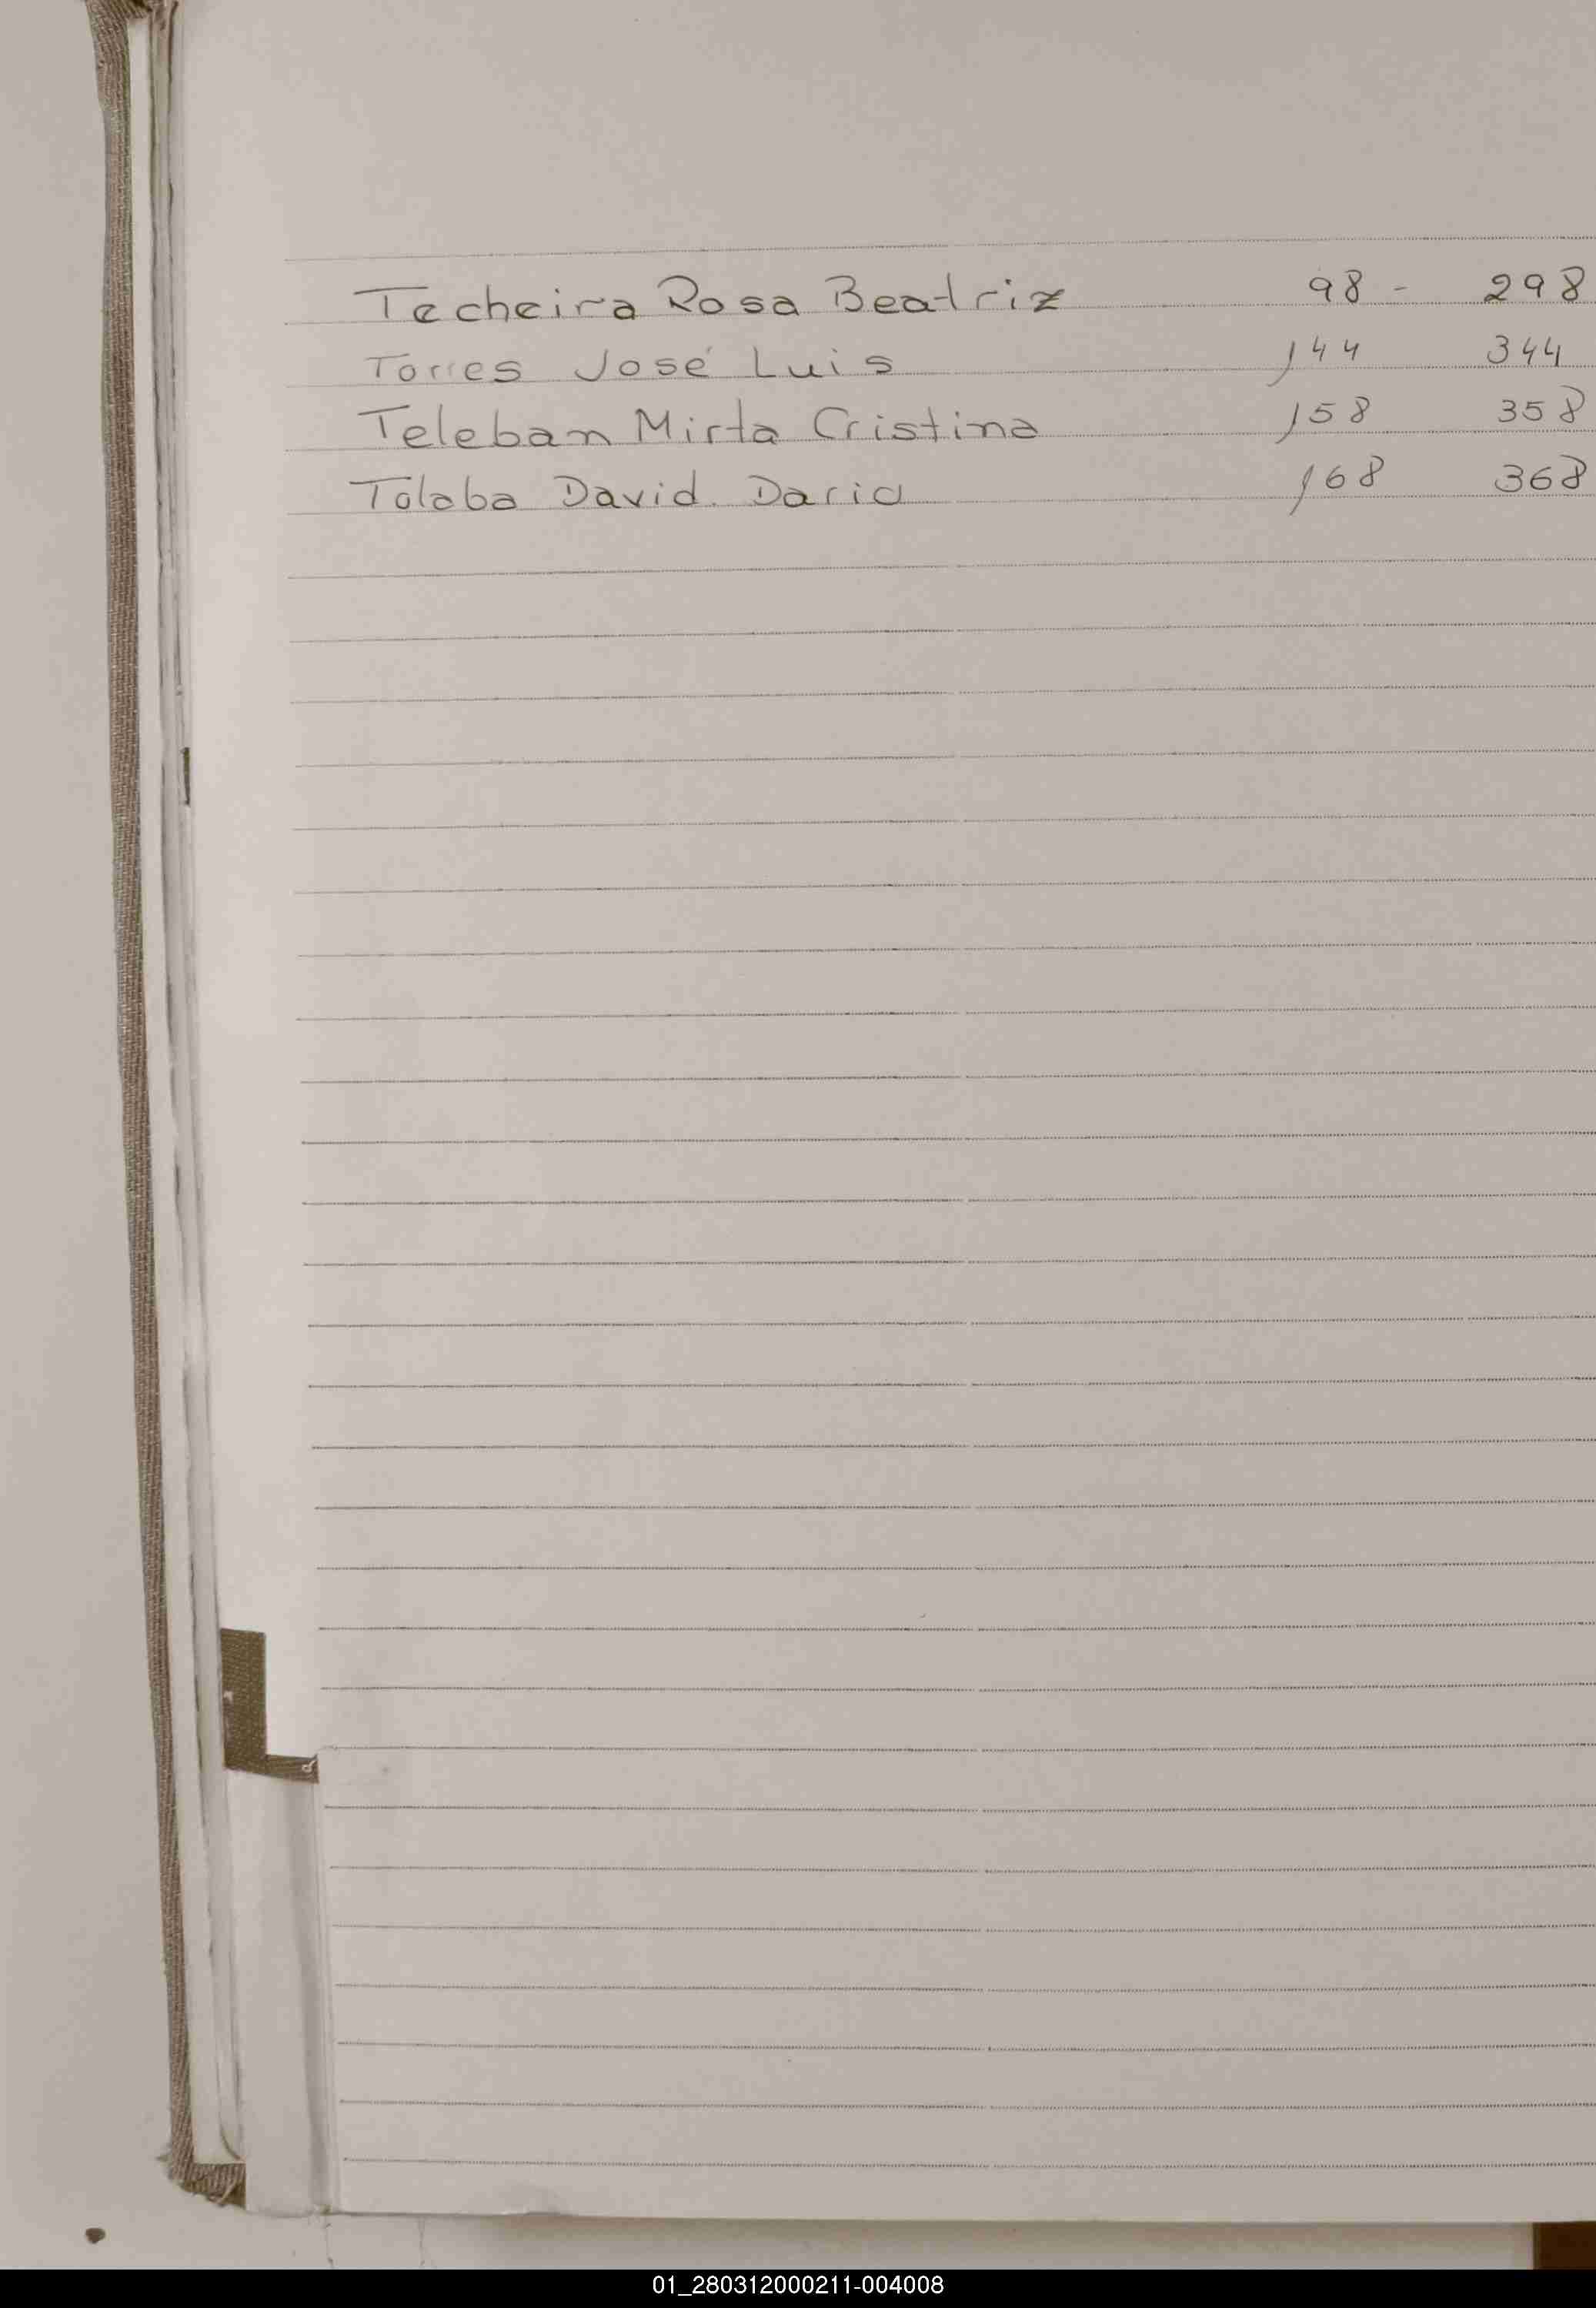 Techeira Rosa Beatriz 98 - 298
Torres José Luis 144 344
Teleban Mirta Cristina 158 358
Tolaba David. Dario 168 368
01_280312000211-004008